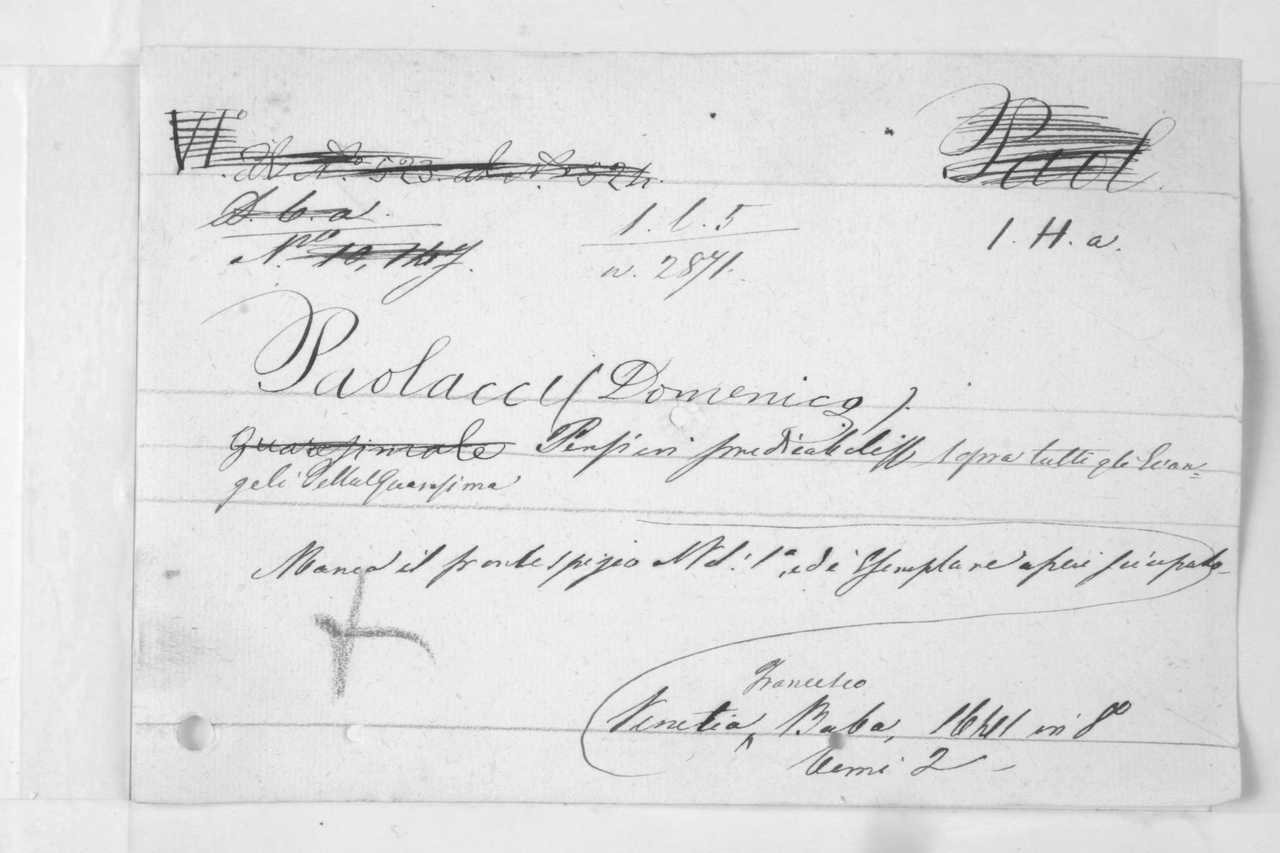 VI.
dal N.º 523. al N.º 524.
D. 6. a.
1. l. 5
1. H. a.
N.ro 10,
n. 2871.
Paol.
Paolacci (Domenico).
Quaresimale Pensieri predicabili sopra tutti gli Evan=
geli della Quaresima
Manca il frontespizio al 1.º, ed è Esemplare assai sciupato
Francesco
Venetia, Baba, 1641 in 8º
tomi 2